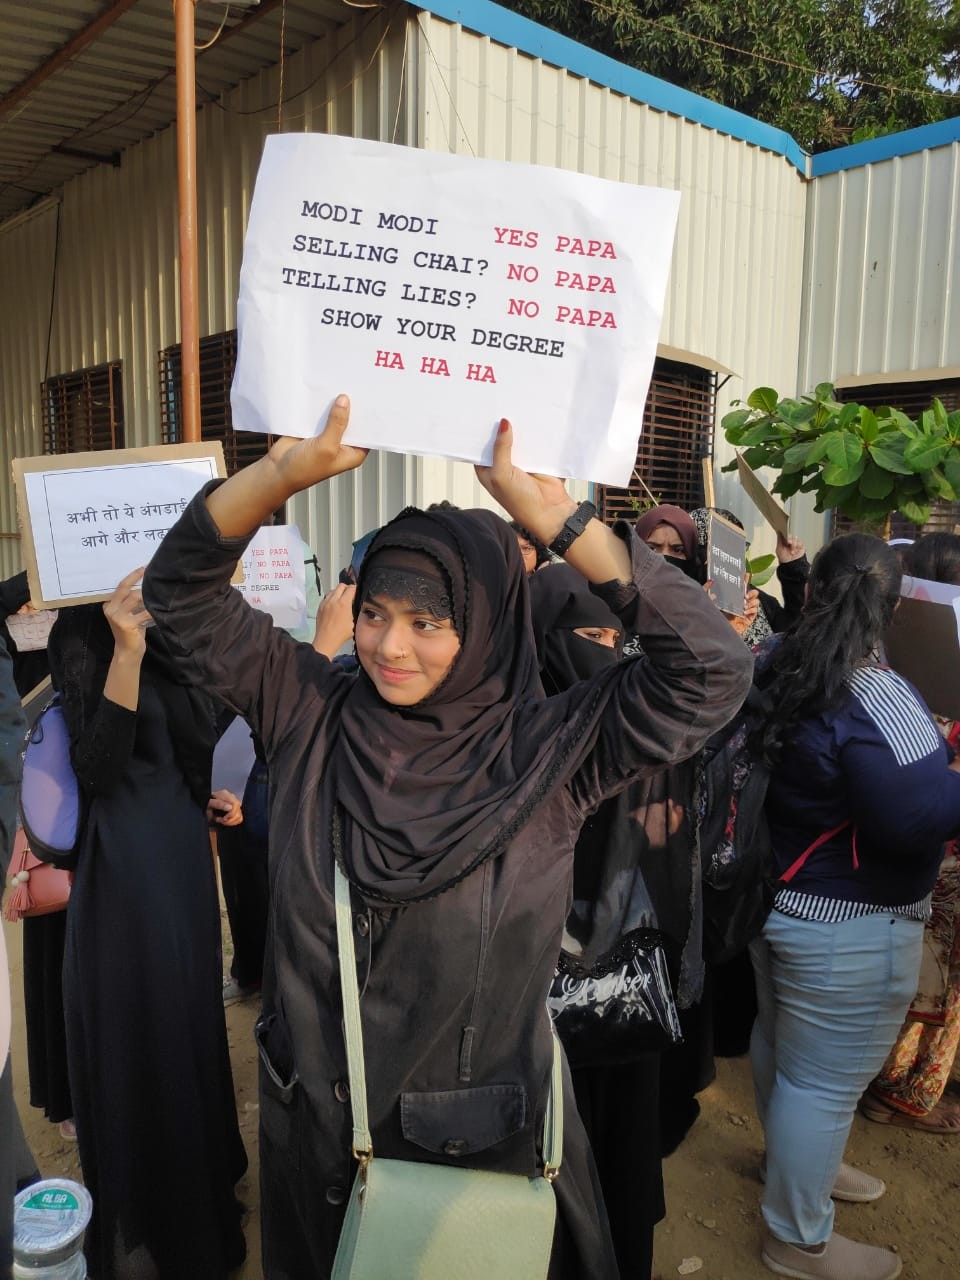 MODI MODI YES PAPA
SELLING CHAI? NO PAPA
TELLING LIES? NO PAPA
SHOW YOUR DEGREE
HA HA HA
अभी तो ये अंगडाई
आगे और
YES PAPA
? NO PAPA
? NO PAPA
DEGREE
HA
ALBA